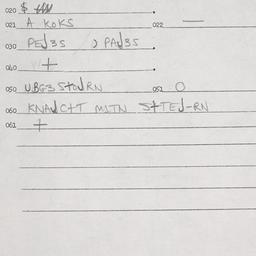 020 $
021 A KOKS 022 —
030 PEJ3S ) PAJ3S
040 +
050 UBG3 STOJRN 051 O
060 KNAJC+T MITN S+TEJ-RN
061 +